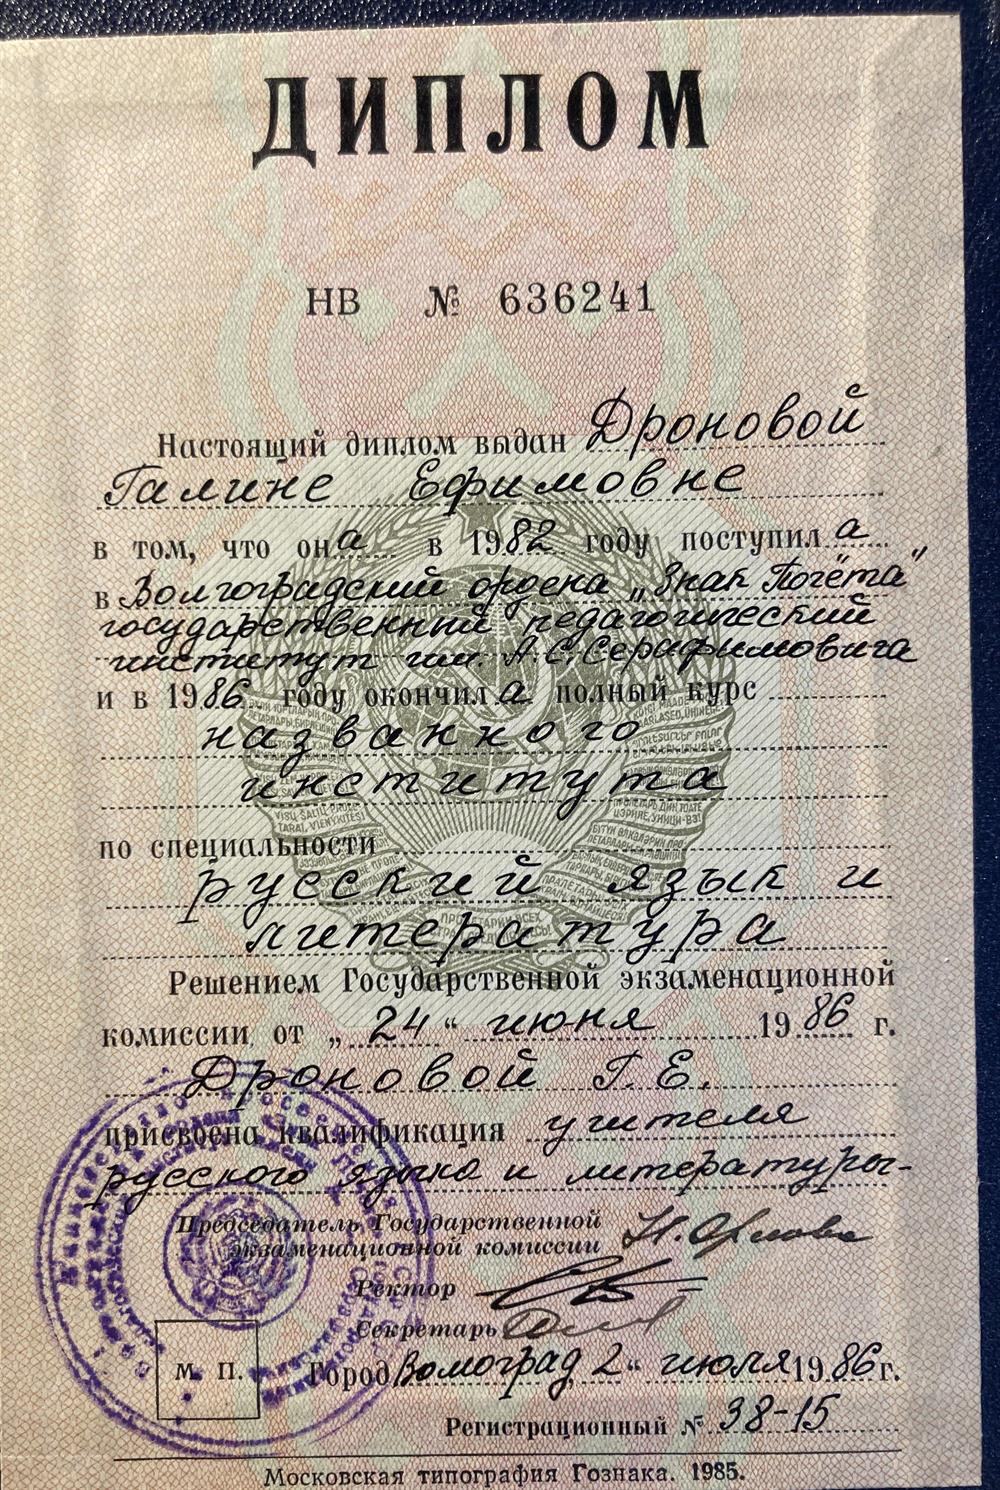 ДИПЛОМ
НВ № 636241
Настоящий диплом выдан Дроновой
Галине Ефимовне
в том, что она в 1982 году поступила
в Волгоградский ордена „Знак Почёта"
государственный педагогический
институт им. А.С. Серафимовича
и в 1986 году окончила полный курс
названного
института
по специальности
русский язык и
литература
Решением Государственной экзаменационной
комиссии от „24“ июня 1986 г.
Дроновой Г.Е.
присвоена квалификация учителя
русского языка и литературы-
Председатель Государственной
экзаменационной комиссии
Ректор
Секретарь
М. П.
Город Волгоград, 2“ июля 1986 г.
Регистрационный № 38-15
Московская типография Гознака. 1985.